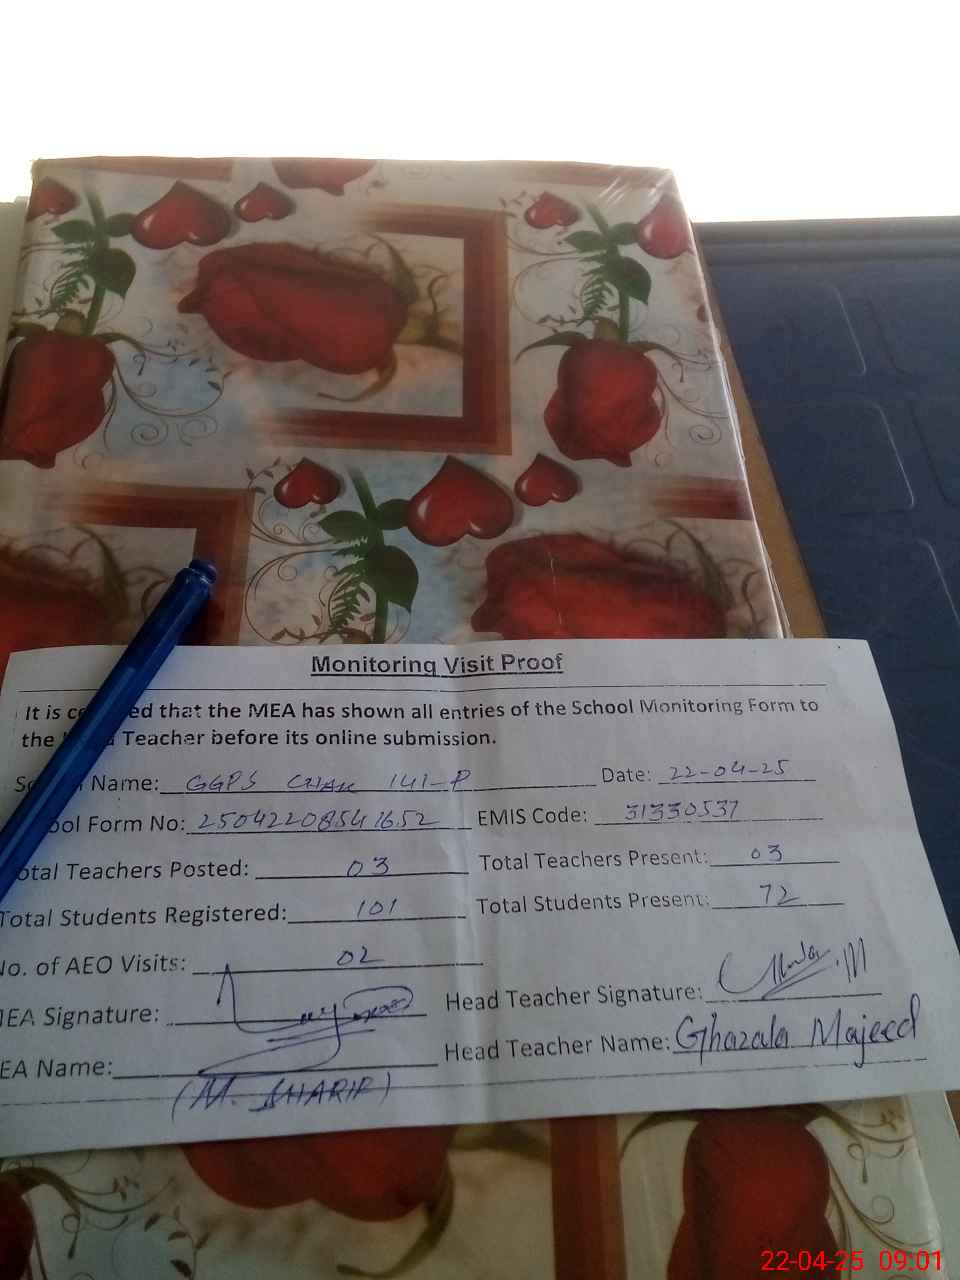 Monitoring Visit Proof
It is ce ed that the MEA has shown all entries of the School Monitoring Form to
the Teacher before its online submission.
Name: GGPS CHAK 141-P Date: 22-04-25
ool Form No: 2504220854 1652 EMIS Code: 31330537
otal Teachers Posted: 03 Total Teachers Present: 03
Total Students Registered: 101 Total Students Present: 72
No. of AEO Visits: 02
IEA Signature: Head Teacher Signature:
EA Name: Head Teacher Name: Ghazala Majeed
(M. SHARIF)
22-04-25 09:01